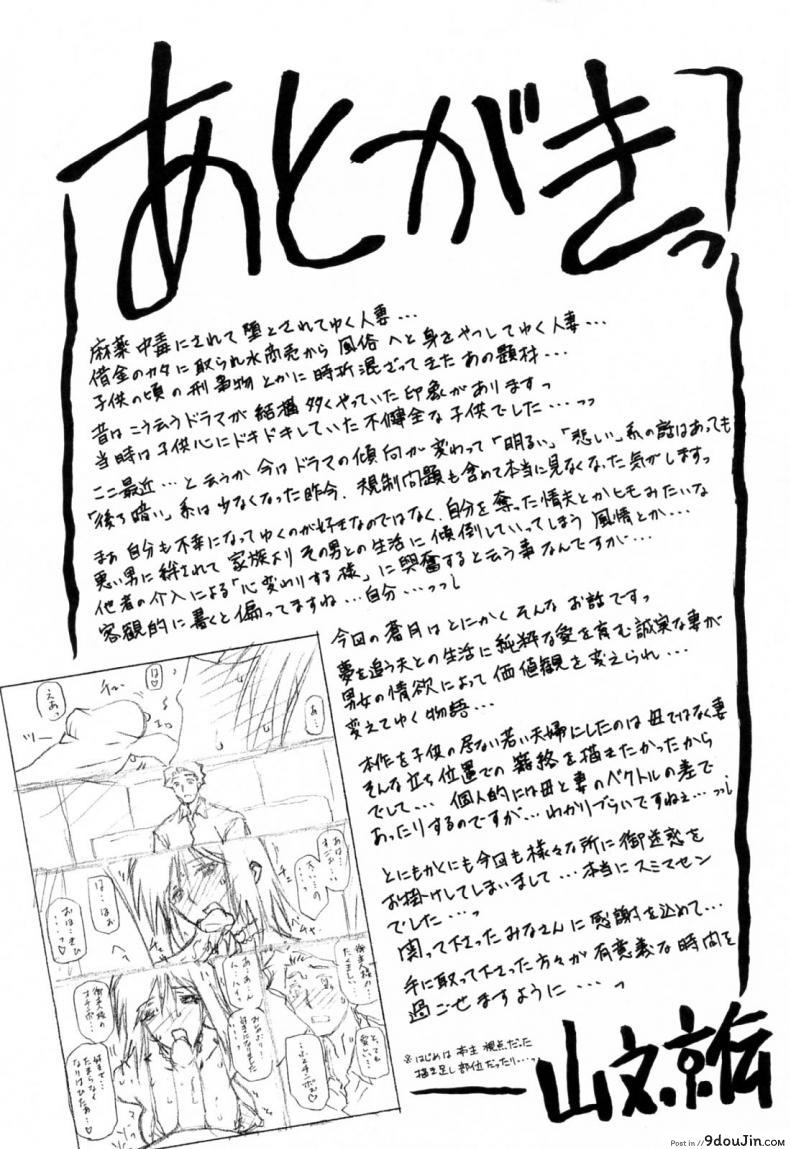 あとがきっ
麻薬中毒にされて堕とされてゆく人妻…
借金のカタに取られ水商売から風俗へと身をやつしてゆく人妻…
子供の頃の刑事物とかに時折混ざってきたあの題材…
昔はこう云うドラマが結構多くやっていた印象がありますっ
当時は子供心にドキドキしていた不健全な子供でした…っっ
ここ最近…と云うか今はドラマの傾向が変わって「明るい」「悲しい」系の話はあっても
「後ろ暗い」系は少なくなった昨今、規制問題も含めて本当に見なくなった気がしますっ
まぁ自分も不幸になってゆくのが好きなのではなく、自分を奪った情夫とかヒモみたいな
悪い男に絆されて家族よりその男との生活に傾倒していってしまう風情とか…
他者の介入による「心変わりする様」に興奮すると云う事なんですが…
客観的に書くと偏ってますね…自分…っっ
今回の蒼月はとにかくそんなお話ですっ
夢を追う夫との生活に純粋な愛を育む誠実な妻が
男女の情欲によって価値観を変えられ…
変えてゆく物語…
本作を子供の居ない若い夫婦にしたのは母ではなく妻
そんな立ち位置での籠絡を描きたかったから
でして… 個人的には母と妻のベクトルの差で
あったりするのですが…わかりづらいですねぇ…っ
とにもかくにも今回も様々な所に御迷惑を
お掛けしてしまいまして…本当にスミマセン
でした…っ
関って下さったみなさんに感謝を込めて…
手に取って下さった方々が有意義な時間を
過ごせますように…っ
※はじめは本主視点だった
描き足し部位だったり…っ
山文京伝
Post in // 9douJin.com